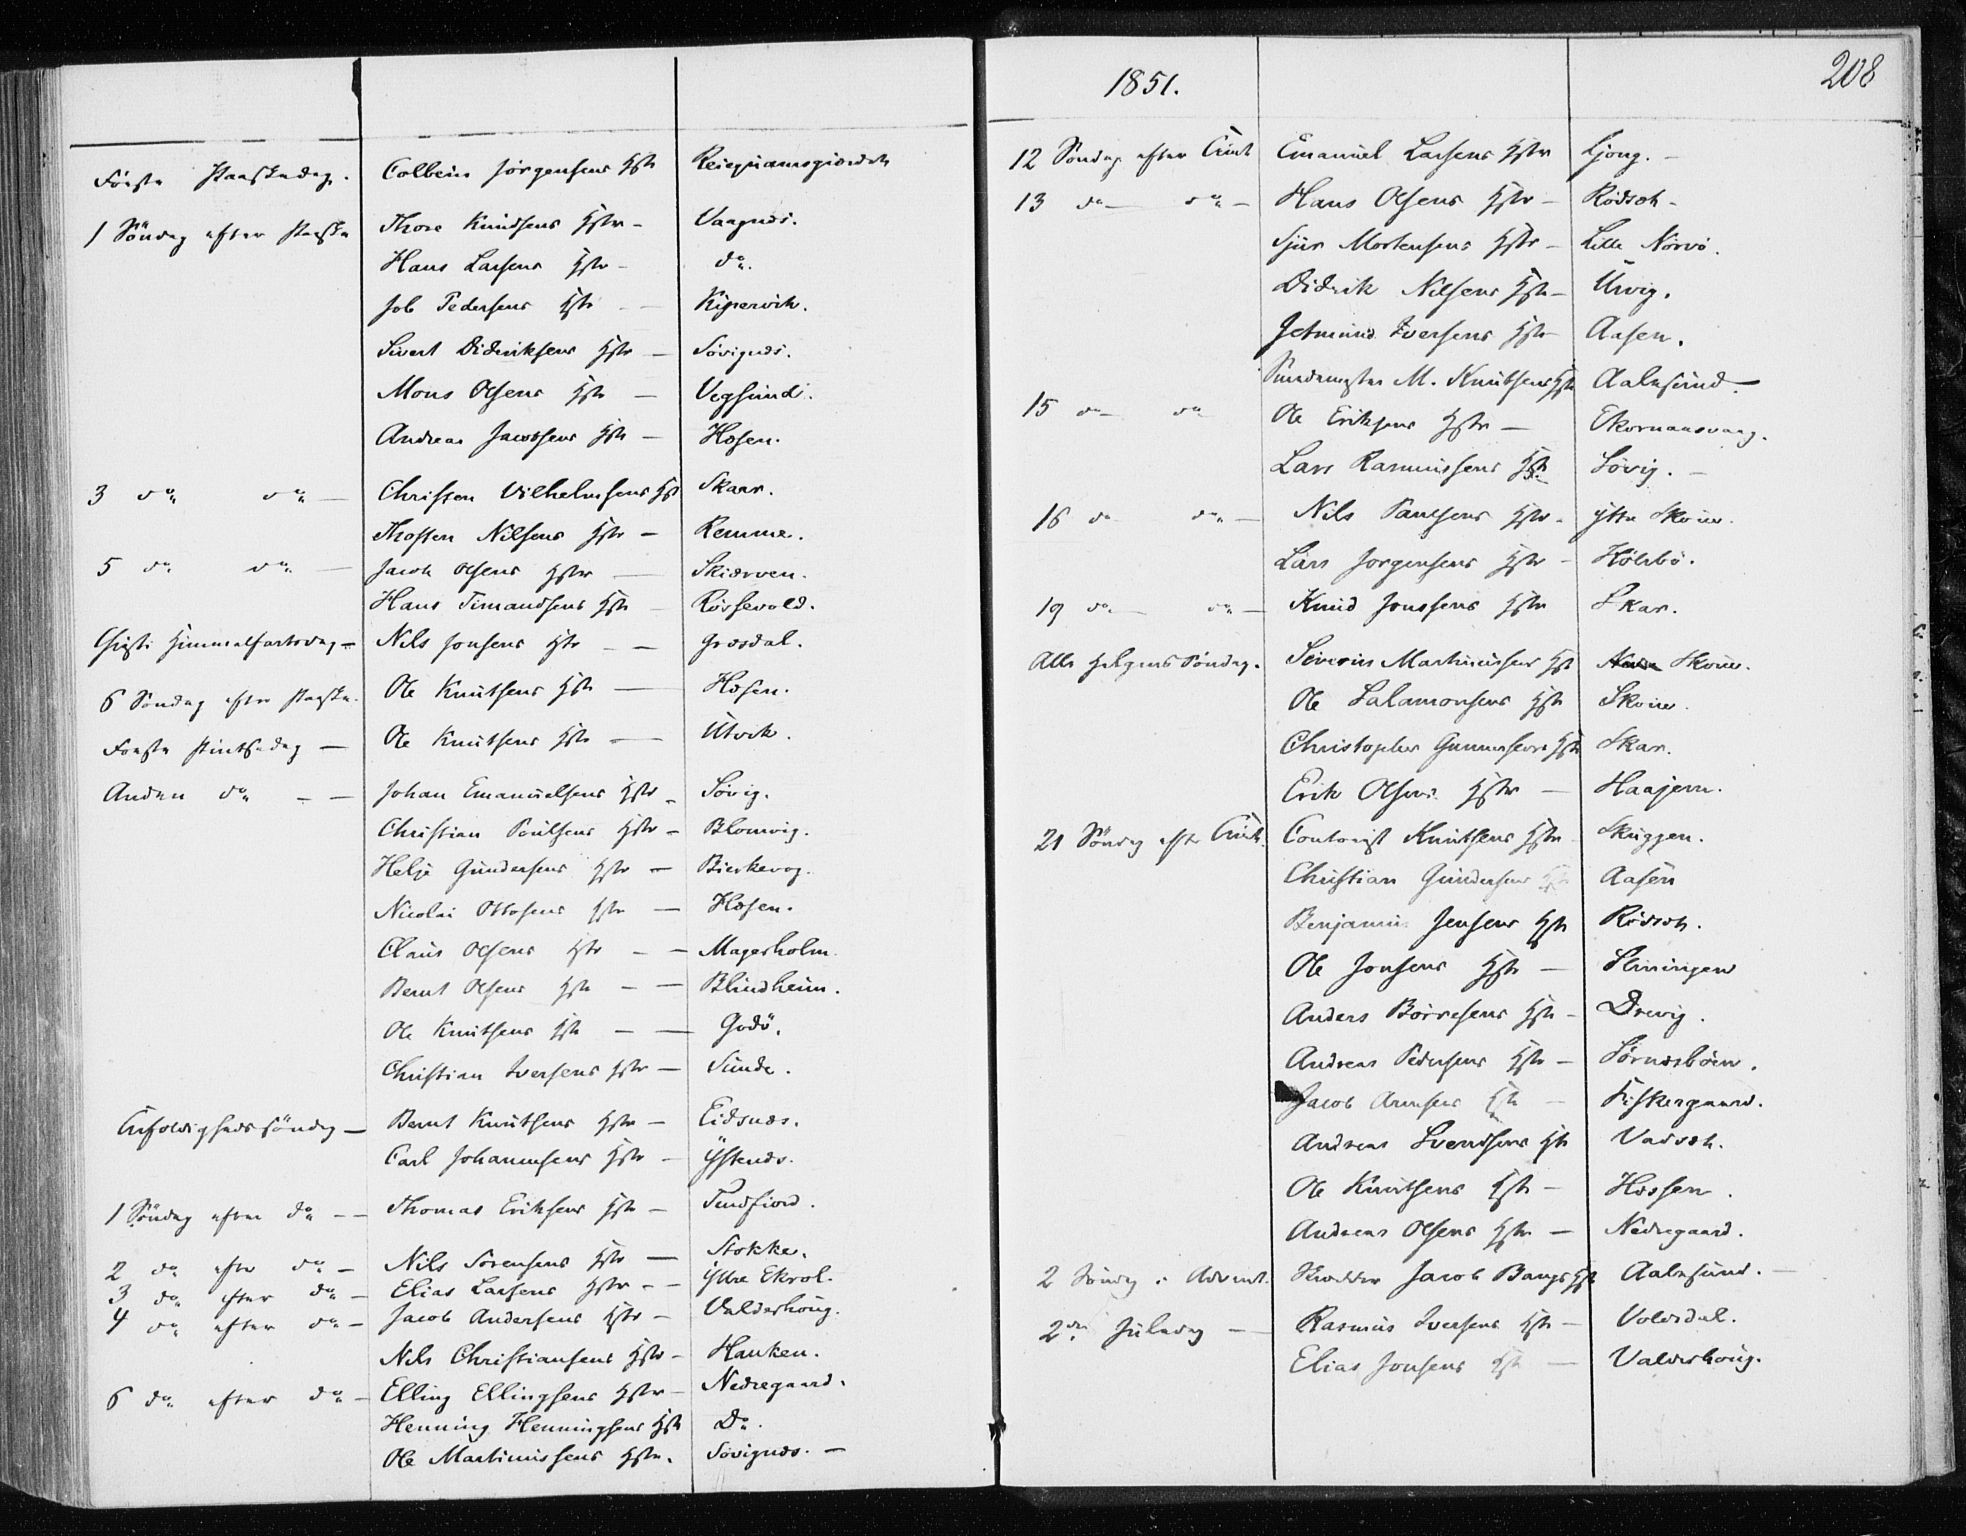 Første Paaskedag. Colbein Jørgensens Hstr
1 Søndag efter Paaske Thore Knudsens Hstr – Vaagnæs.
Hans Larsens Hstr – do.
Job Pedersens Hstr – Kipervik.
Sivert Didriksens Hstr – Søvignæs.
Mons Olsens Hstr – Vegsund.
Andreas Jacobsens Hstr – Hosen.
3 do do – Christen Vilhelmsens Hst Skaar.
Thosten Nilsens Hstr – Remme.
5 do do – Jacob Olsens Hstr – Skiærven.
Hans Timandsens Hstr – Røssevold.
Christi Himmelfartsdag – Nils Jonsens Hstr – – Græsdal.
6 Søndag efter Paaske. Ole Knutsens Hstr – Hosen.
Første Pintsedag – Ole Knutsens Hstr – Utvik.
Anden do – – Johan Emanuelsens Hstr – Søvig.
Christian Poulsens Hstr – Blomvig.
Helje Gundersens Hstr – Bierkevog.
Nicolai Ottosens Hstr – Hosen.
Claus Olsens Hstr – – Magerholm.
Bernt Olsens Hstr – – Blindheim.
Ole Knutsens Hstr – – Godø.
Christian Iversens Hstr – Sunde.
Trefoldighedssøndag – Bernt Knutsens Hstr – Eidsnæs.
Carl Johannesens Hstr – Ystenæs.
1 Søndag efter do – – Thomas Eriksens Hstr – Tuesfiord.
2 do efter do – Nils Sørensens Hstr – Stokke.
3 do efter do – Elias Larsens Hstr – – Yttre Ekrol.
4 do efter do – Jacob Andersens Hstr – Valderhoug.
Nils Christiansens Hstr – Hanken.
6 do efter do – Elling Ellingsens Hstr – Nedregaard.
Henning Henningsens Hstr Do.
Ole Martinussens Hstr. Søvignæs. –
1851.
208
12 Søndag efter Trinit Emanuel Larsens Hstr Ljong. –
13 do – do – Hans Olsens Hstr – Rødseth –
Sjur Mortensens Hstr – Lille Nørvø.
Didrik Nilsens Hstr – Urvig.
Jetmund Iversens Hstr – Aasen.
M. Knutsens Hstr Aalesund –
15 do – do Ole Eriksens Hstr – Ekornaasvaag.
Lars Rasmussens Hstr Søvig. –
16 do do – Nils Paulsens Hstr – ytte Skoue.
Lars Jørgensens Hstr – Holsbø.
19 do – do – Knud Jonssens Hstr Skar.
Alle Helgens Søndag. Severin Martinussens Hst Skoue.
Ole Salamonsens Hstr Skoue.
Christopher Gunnersens Hstr Skar.
Erik Olsens Hstr – Haajem.
21 Søndag efter Trinit. Contorist Knutsens Hstr Skuggen.
Christian Gundersens Hstr Aasen
Benjamin Jensens Hstr Rødseth.
Ole Jonsens Hstr – Slinningen
Anders Børresens Hstr – Drevig.
Andreas Pedersens Hstr – Sørnæsbøen.
Jacob Arnesens Hstr – Fiskergaard.
Andreas Svendsens Hst Vadseth.
Ole Knutsens Hstr – Hossen.
Andreas Olsens Hstr – Nedregaard.
2 Søndag i Advent. Skrædder Jacob Bangs Hst Aalesund. –
2den Juledag – Rasmus Iversens Hstr – Volsdal.
Elias Jonsens Hst – Valderhoug.